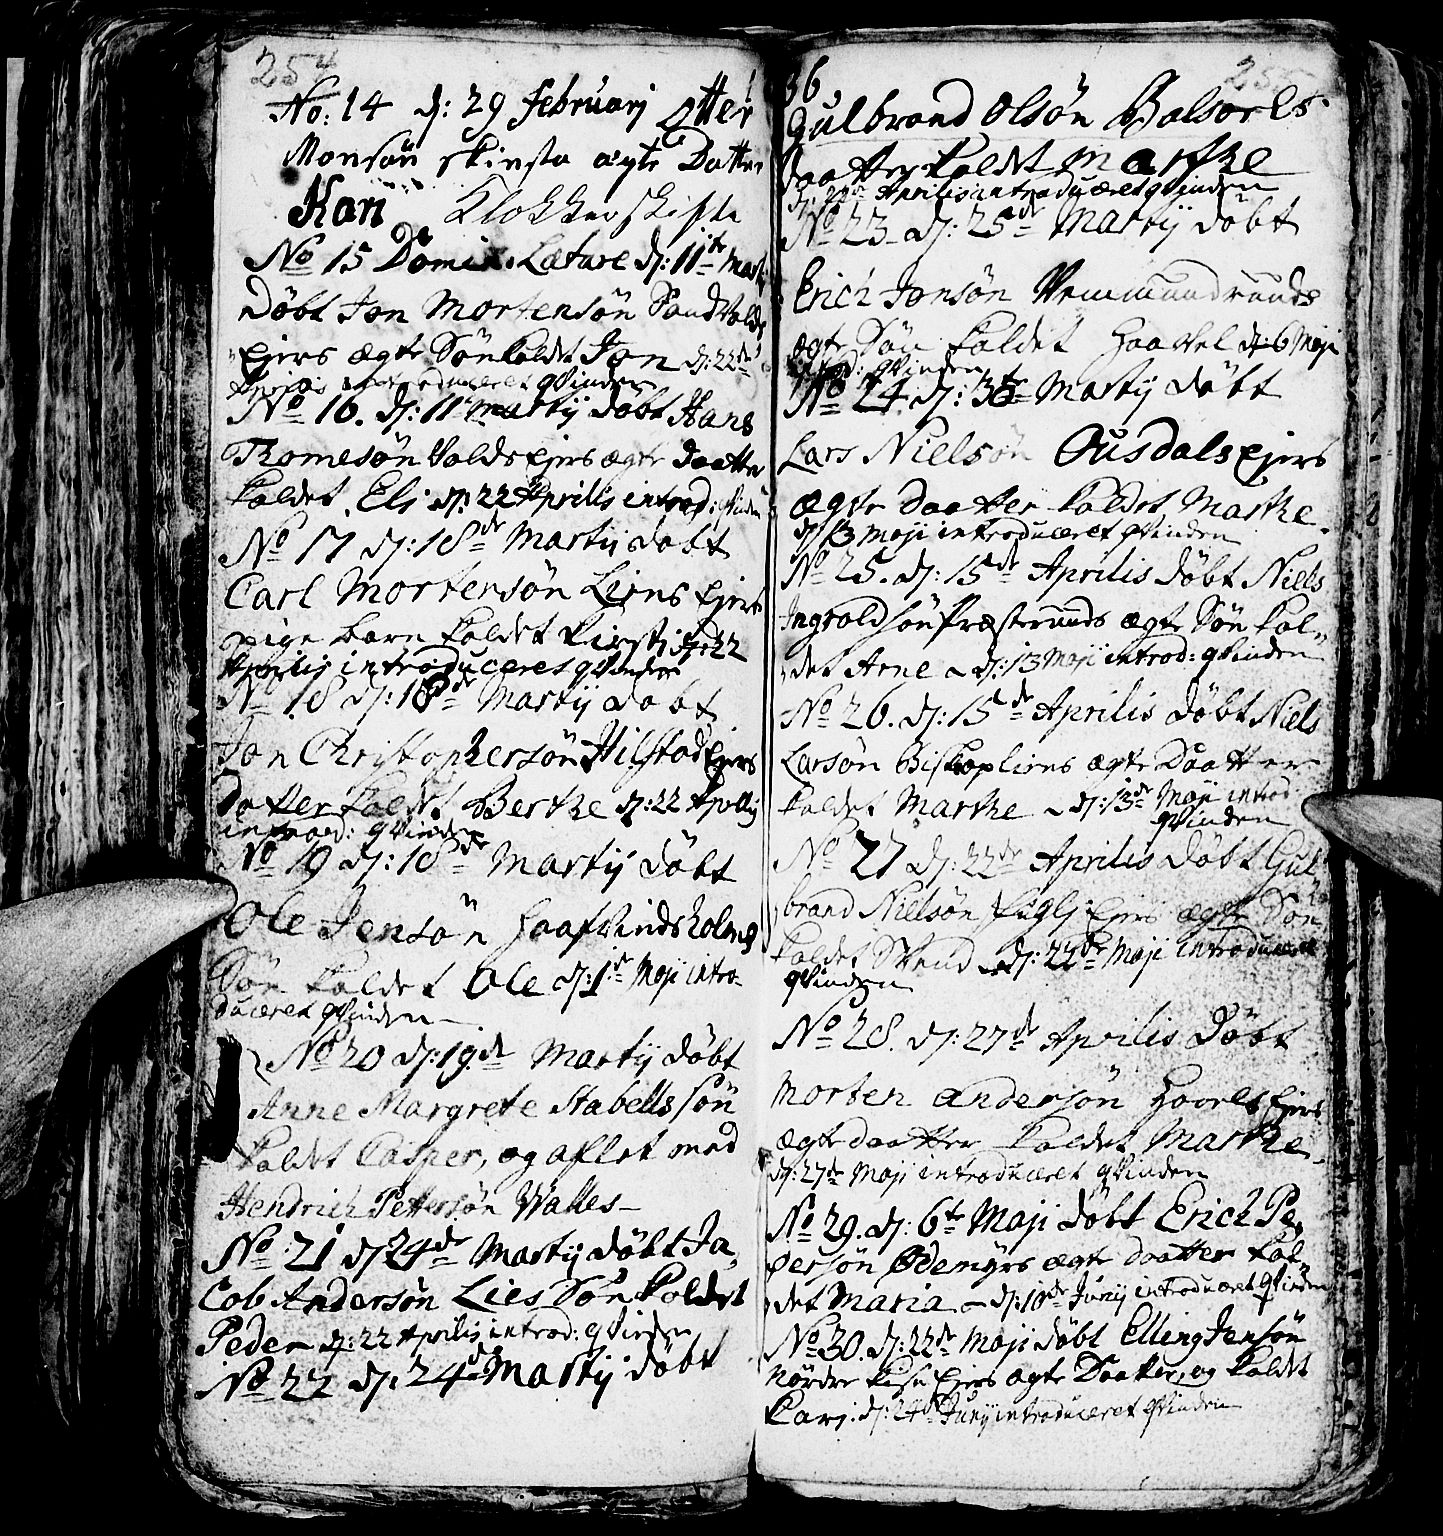 254
No: 14 d: 29 februarj Otter
Monsøn skinsta ægte Datter
Kari Klokker skifte
No 15 Domin. Lætare d: 11te Martij
Døbt Jon Mortensøn Sandvolds
Ejers ægte Søn kaldet Jon d: 22de
Aprilis introduceret qvinden
No 16. d: 11 Martij døbt Hans
Thomesøn Volds Ejers ægte daatter
kaldet Els d: 22 Aprilis introd: qvinden
No 17 d: 18de Martij døbt
Carl Mortensøn Liens Ejers
pige barn kaldet Kirsti d: 22
Aprilis introduceret qvinden
No 18 d: 18de Martij døbt
Jon Christophersøn Hilstad Ejers
datter kaldet Berthe d: 22 Aprilis
introd: qvinden
No 19 d: 18de Martij døbt
Ole Jensøn Haafvindsholms
Søn kaldet Ole d: 1te Maji intro-
duceret qvinden
No 20 d: 19de Martij døbt
Anne Margrete Stabells søn
kaldet Casper, og aflet med
Hendrich Pettersøn Walles
No 21 d: 24de Martij døbt Ja-
cob Andersøn Lies Søn kaldet
Peder d: 22 Aprilis introd: qvinden
No 22 d: 24de Martij døbt
36
255
Gulbrand Olsøn Balsorles
daatter kaldet Marthe
Aprilis introduceret qvinden
No 23 d: 25de Martij døbt
Erich Jonsøn Vemmundruuds
ægte Søn kaldet Haavel d: 6 Maji
introd: qvinden
No 24 d: Martij døbt
Lars Nielsøn Ousdals Ejers
ægte daatter kaldet Marthe.
d: 13 Maji introduceret qvinden
No 25. d: 15de Aprilis døbt Niels
Ingvoldsøn Præsteruuds ægte Søn kal-
det Arne d: 13 Maji introd: qvinden
No 26. d: 15de Aprilis døbt Niels
Larsøn Biskopliens ægte Daatter
kaldet Marthe d: 13de Maji introd
qvinden
No 27 d: 22de Aprilis døbt Gul-
brand Nielsøn Fuglj Ejers ægte Søn
kaldet Svend d: 22de Maji introduceret
qvinden
No 28. d: 27de Aprilis døbt
Morten Andersøn Haarels Ejers
ægte daatter kaldet Marthe.
d: 27de Maji introduceret qvinden
No 29. d: 6te Maji døbt Erich Pe-
dersøn Ødemyrs ægte daatter kal-
det Maria d: 10de Junij introduceret qvinden
No 30. d: 22de Maji døbt Elling Jensøn
Nordre Ejers ægte Daatter, og kaldet
Kari: d: 24de Junij introduceret qvinden